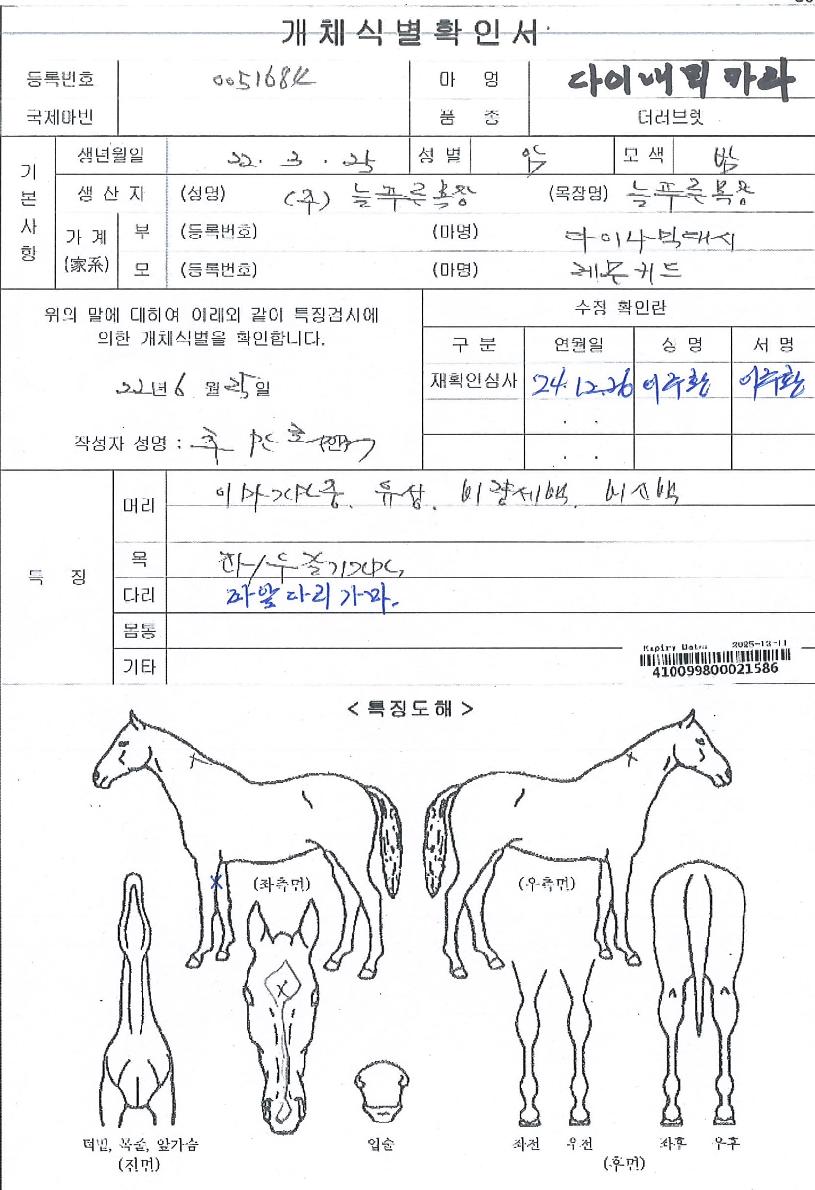 개체식별확인서
등록번호 0051684 마 명 다이내믹카라
국제마번 품 종 더러브렛
기본사항
생년월일 22. 3. 25 성 별 암 모 색 밤
생 산 자 (성명) (주) 늘푸른목장 (목장명) 늘푸른목장
가 계 (家系) 부 (등록번호) (마명)
모 (등록번호) (마명) 레몬커드
위의 말에 대하여 아래와 같이 특징검사에
의한 개체식별을 확인합니다.
22년 6월 25일
작성자 성명 :
수정 확인란
구 분 연월일 성 명 서 명
재확인심사 '24.12.26 이주환 이주환
특 징
머리 유상, 비량세백, 비소백
목 좌/우
다리 좌앞다리 가마.
몸통
기타
Expiry Date 2025-12-11
410099800021586
< 특징도해 >
(좌측면) (우측면)
턱밑, 목줄, 앞가슴
(전면)
입술
좌전 우전 좌후 우후
(후면)